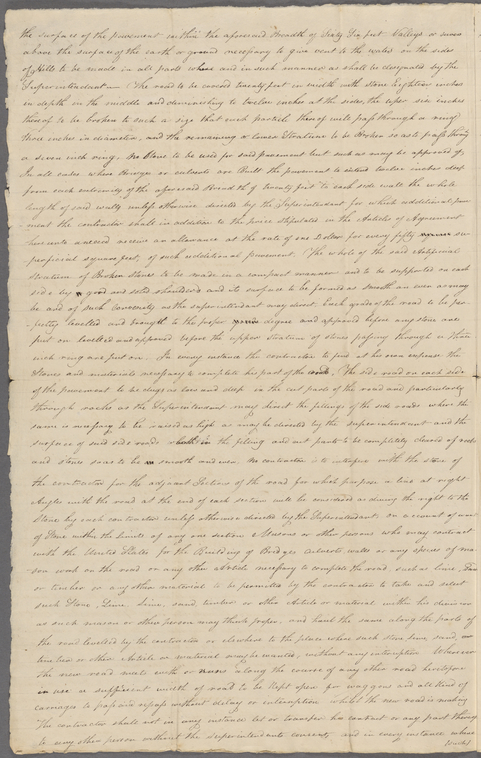 the surface of the pavement within the aforesaid Breadth of Sixty Six feet Valleys or
above the surface of the earth or ground necessary to give vent to the water on the sides
of Hills to be made in all parts where and in such manner as shall be designated by the
Superintendant. The road to be covered twenty feet in width with stone Eighteen inches
in depth in the middle and diminishing to twelve inches at the sides, the uper six inches
thereof to be broken to such a size that each particle thereof will pass through a ring
three inches in diameter, and the remaining or lower Stratum to be Broken so as to pass through
a seven inch ring. No Stone to be used for said pavement but such as may be approved of,
In all cases where Bridges or culverts are Built the pavement to extend twelve inches deep
from each extremity of the aforesaid Breadth of twenty feet to each side wall the whole
length of said walls unless otherwise directed by the Superintendant for which additional pave-
ment the contractor shall in addition to the price stipulated in the Articles of Agreement
hereunto annexed receive an allowance at the rate of one Dollar for every fifty su-
perficial square feet, of such additional pavement. The whole of the said Artificial
Stratum of Broken Stones to be made in a compact manner and to be supported on each
side by good and solid shoulders and its surface to be formed as smooth an even as may
be and of such convexity as the superintendant may direct. Each grade of the road to be per-
fectly levelled and brought to the proper degree and approved before any stone are
put on levelled and approved before the upper Stratum of stones passing through a three
inch ring are put on. In every instance the contractor to find at his own expense the
Stones and materials necessary to complete his part of the road. The side road on each side
of the pavement to be dug as low and deep in the cut parts of the road and particularly
through rocks as the Superintendant may direct the fillings of the side roads where the
same is necessary to be raised as high as may be directed by the superintendent and the
surface of said side roads both in the filling and cut parts to be completely cleared of rocks
and stones so as to be smooth and even. No contractor is to interfere with the stone of
the contractor for the adjacent Section of the road for which purpose a line at right
Angles with the road at the end of each section will be considered as dividing the right to the
Stone by such contractors unless otherwise directed by the Superintendant, on account of want
of Stone within the limits of any one section Masons or other persons who may contract
with the United States for the Building of Bridges Culverts walls or any species of ma-
son work on the road or any other Article necessary to complete the road such as lime,
or timber or any other material to be permitted by the contractor to take and select
such Stone, Lime, sand, timber or other Article or material within his division
as such mason or other persons may think proper, and haul the same along the parts of
the road levelled by the contractor or elsewhere to the place where such stone lime, sand,
timber or other Article or material may be wanted, without any interruption. Wherever
the new road meets with or runs along the course of any other road heretofore
in use a sufficient width of road to be kept open for waggons and all kind of
carriages to pass and repass without delay or interruption whilst the new road is making
The contractor shall not in any instance let or transfer his contract or any part thereof
to any other person without the superintendants consent, and in every instance where